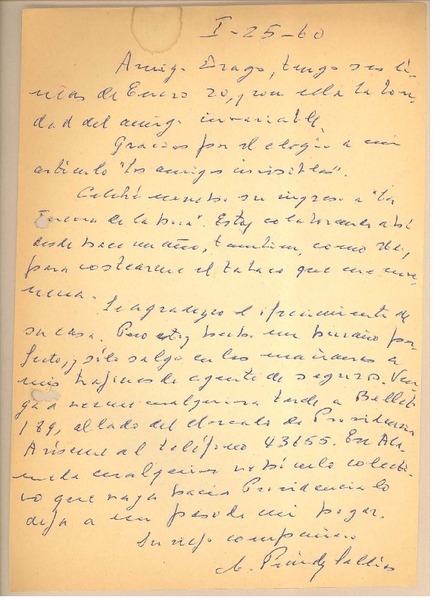 I-25-60
Amigo Drago, tengo sus lí-
neas de Enero 20, y con ella la bon-
dad del amigo invariable.
Gracias por el elogio a mi
artículo "Los amigos invisibles".
Celebré mucho su ingreso a "La
Tercera de la hora". Estoy colaborando ahí
desde hace un año, también, como Ud.,
para costearme el tabaco que me enve-
nena.
Le agradezco el ofrecimiento de
su casa. Pero estoy hecho un huraño per-
fecto, y sólo salgo en las mañanas a
mis trajines de agente de seguros. Ven-
ga a verme cualquiera tarde a
179, al lado del Mercado de Presidencia
Avíseme al teléfono 43655. En Ala-
meda cualquier vehículo colecti-
vo que vaya hacia Presidencia lo
deja a un paso de mi hogar.
Su viejo compañero